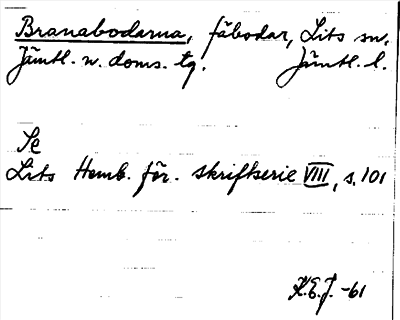 Branabodarna, fäbodar, Lits sn,
Jämtl. n. doms. tg. Jämtl. l.
Se
Lits Hemb. för. skriftserie VIII, s. 101
K.E.J. -61